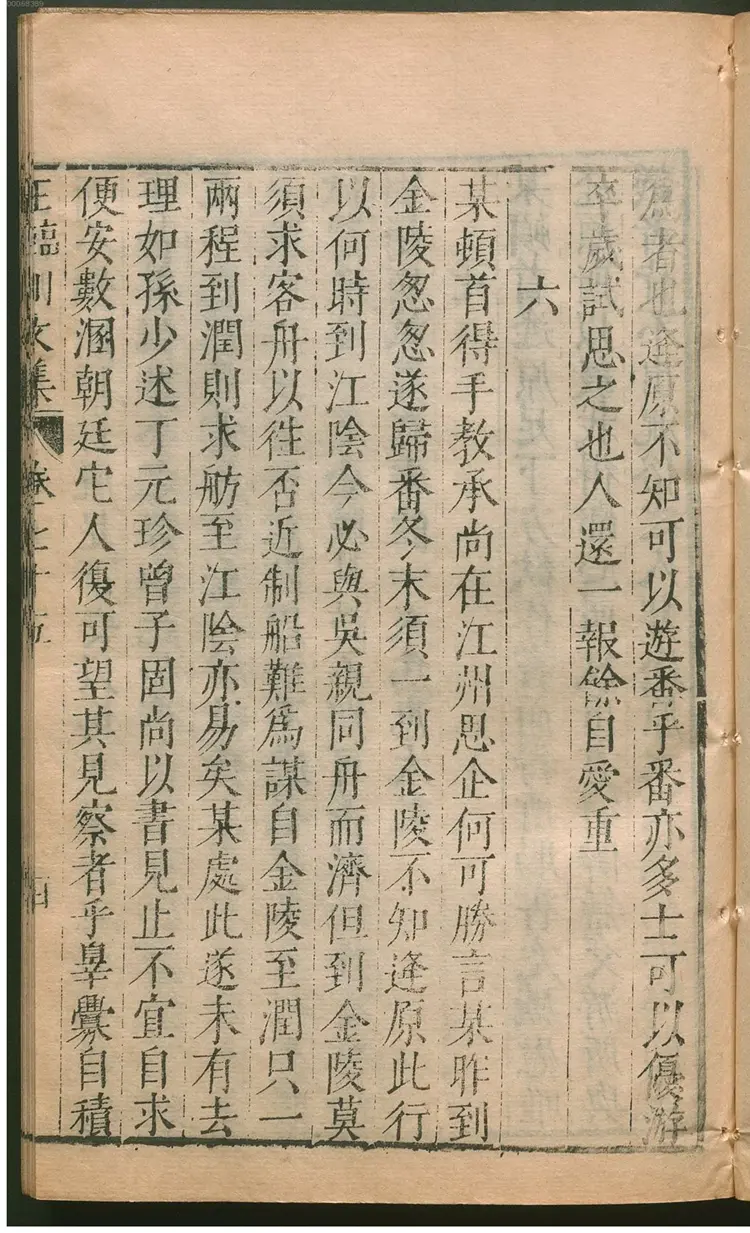 為者也逢原不知可以遊番乎番亦多士可以優游
卒歲試思之也人還一報餘自愛重
六
某頓首得手教承尚在江州思企何可勝言某昨到
金陵忽忽遂歸番冬末須一到金陵不知逢原此行
以何時到江陰今必與吳親同舟而濟但到金陵莫
須求客舟以往否近制船難為謀自金陵至潤只一
兩程到潤則求舫至江陰亦易矣某處此遂未有去
理如孫少述丁元珍曾子固尚以書見止不宜自求
便安數溷朝廷它人復可望其見察者乎辠釁自積
王臨川文集 卷七十五 四
00068399